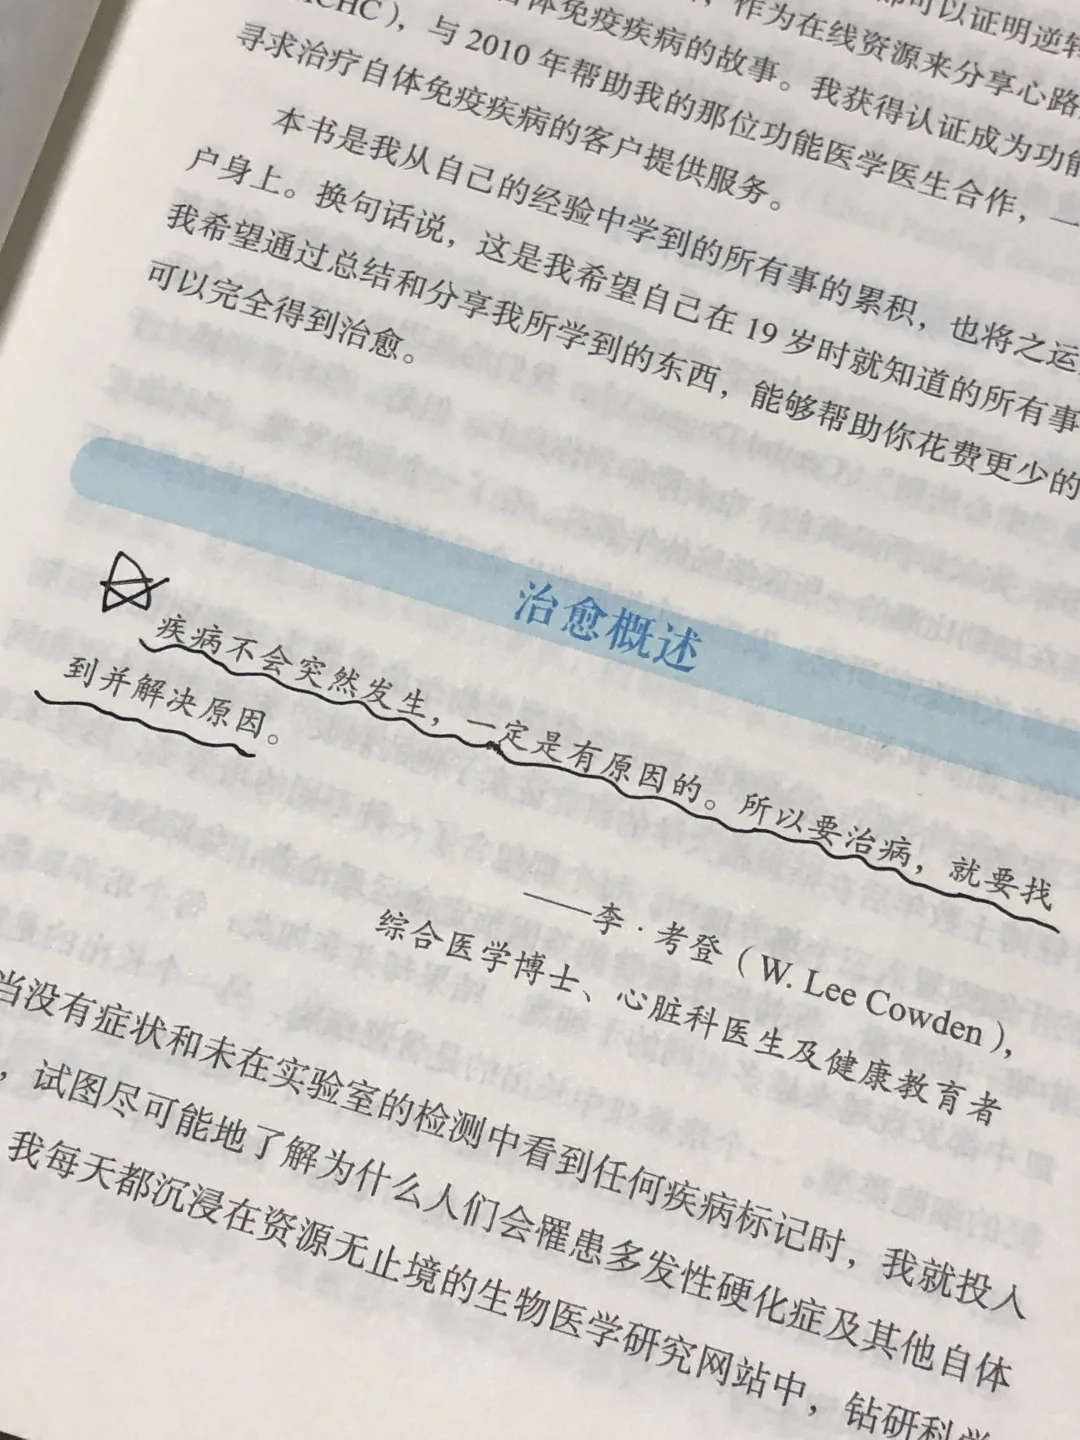 都可以证明逆转
体免疫疾病的故事。我获得认证成为功能
，作为在线资源来分享心路
CHC），与 2010 年帮助我的那位功能医学医生合作，一
寻求治疗自体免疫疾病的客户提供服务。
本书是我从自己的经验中学到的所有事的累积，也将之运
户身上。换句话说，这是我希望自己在 19 岁时就知道的所有事
我希望通过总结和分享我所学到的东西，能够帮助你花费更少的
可以完全得到治愈。
治愈概述
疾病不会突然发生，一定是有原因的。所以要治病，就要找
到并解决原因。
——李·考登（W. Lee Cowden），
综合医学博士、心脏科医生及健康教育者
当没有症状和未在实验室的检测中看到任何疾病标记时，我就投入
，试图尽可能地了解为什么人们会罹患多发性硬化症及其他自体
我每天都沉浸在资源无止境的生物医学研究网站中，钻研科学